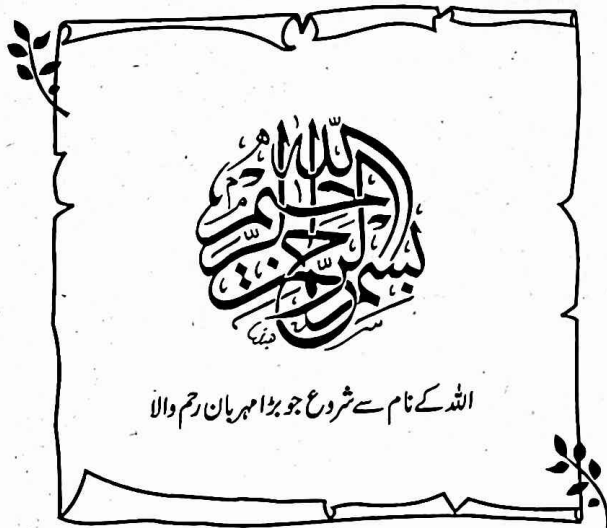 بسم الله الرحمن الرحيم
اللہ کے نام سے شروع جو بڑا مہربان رحم والا